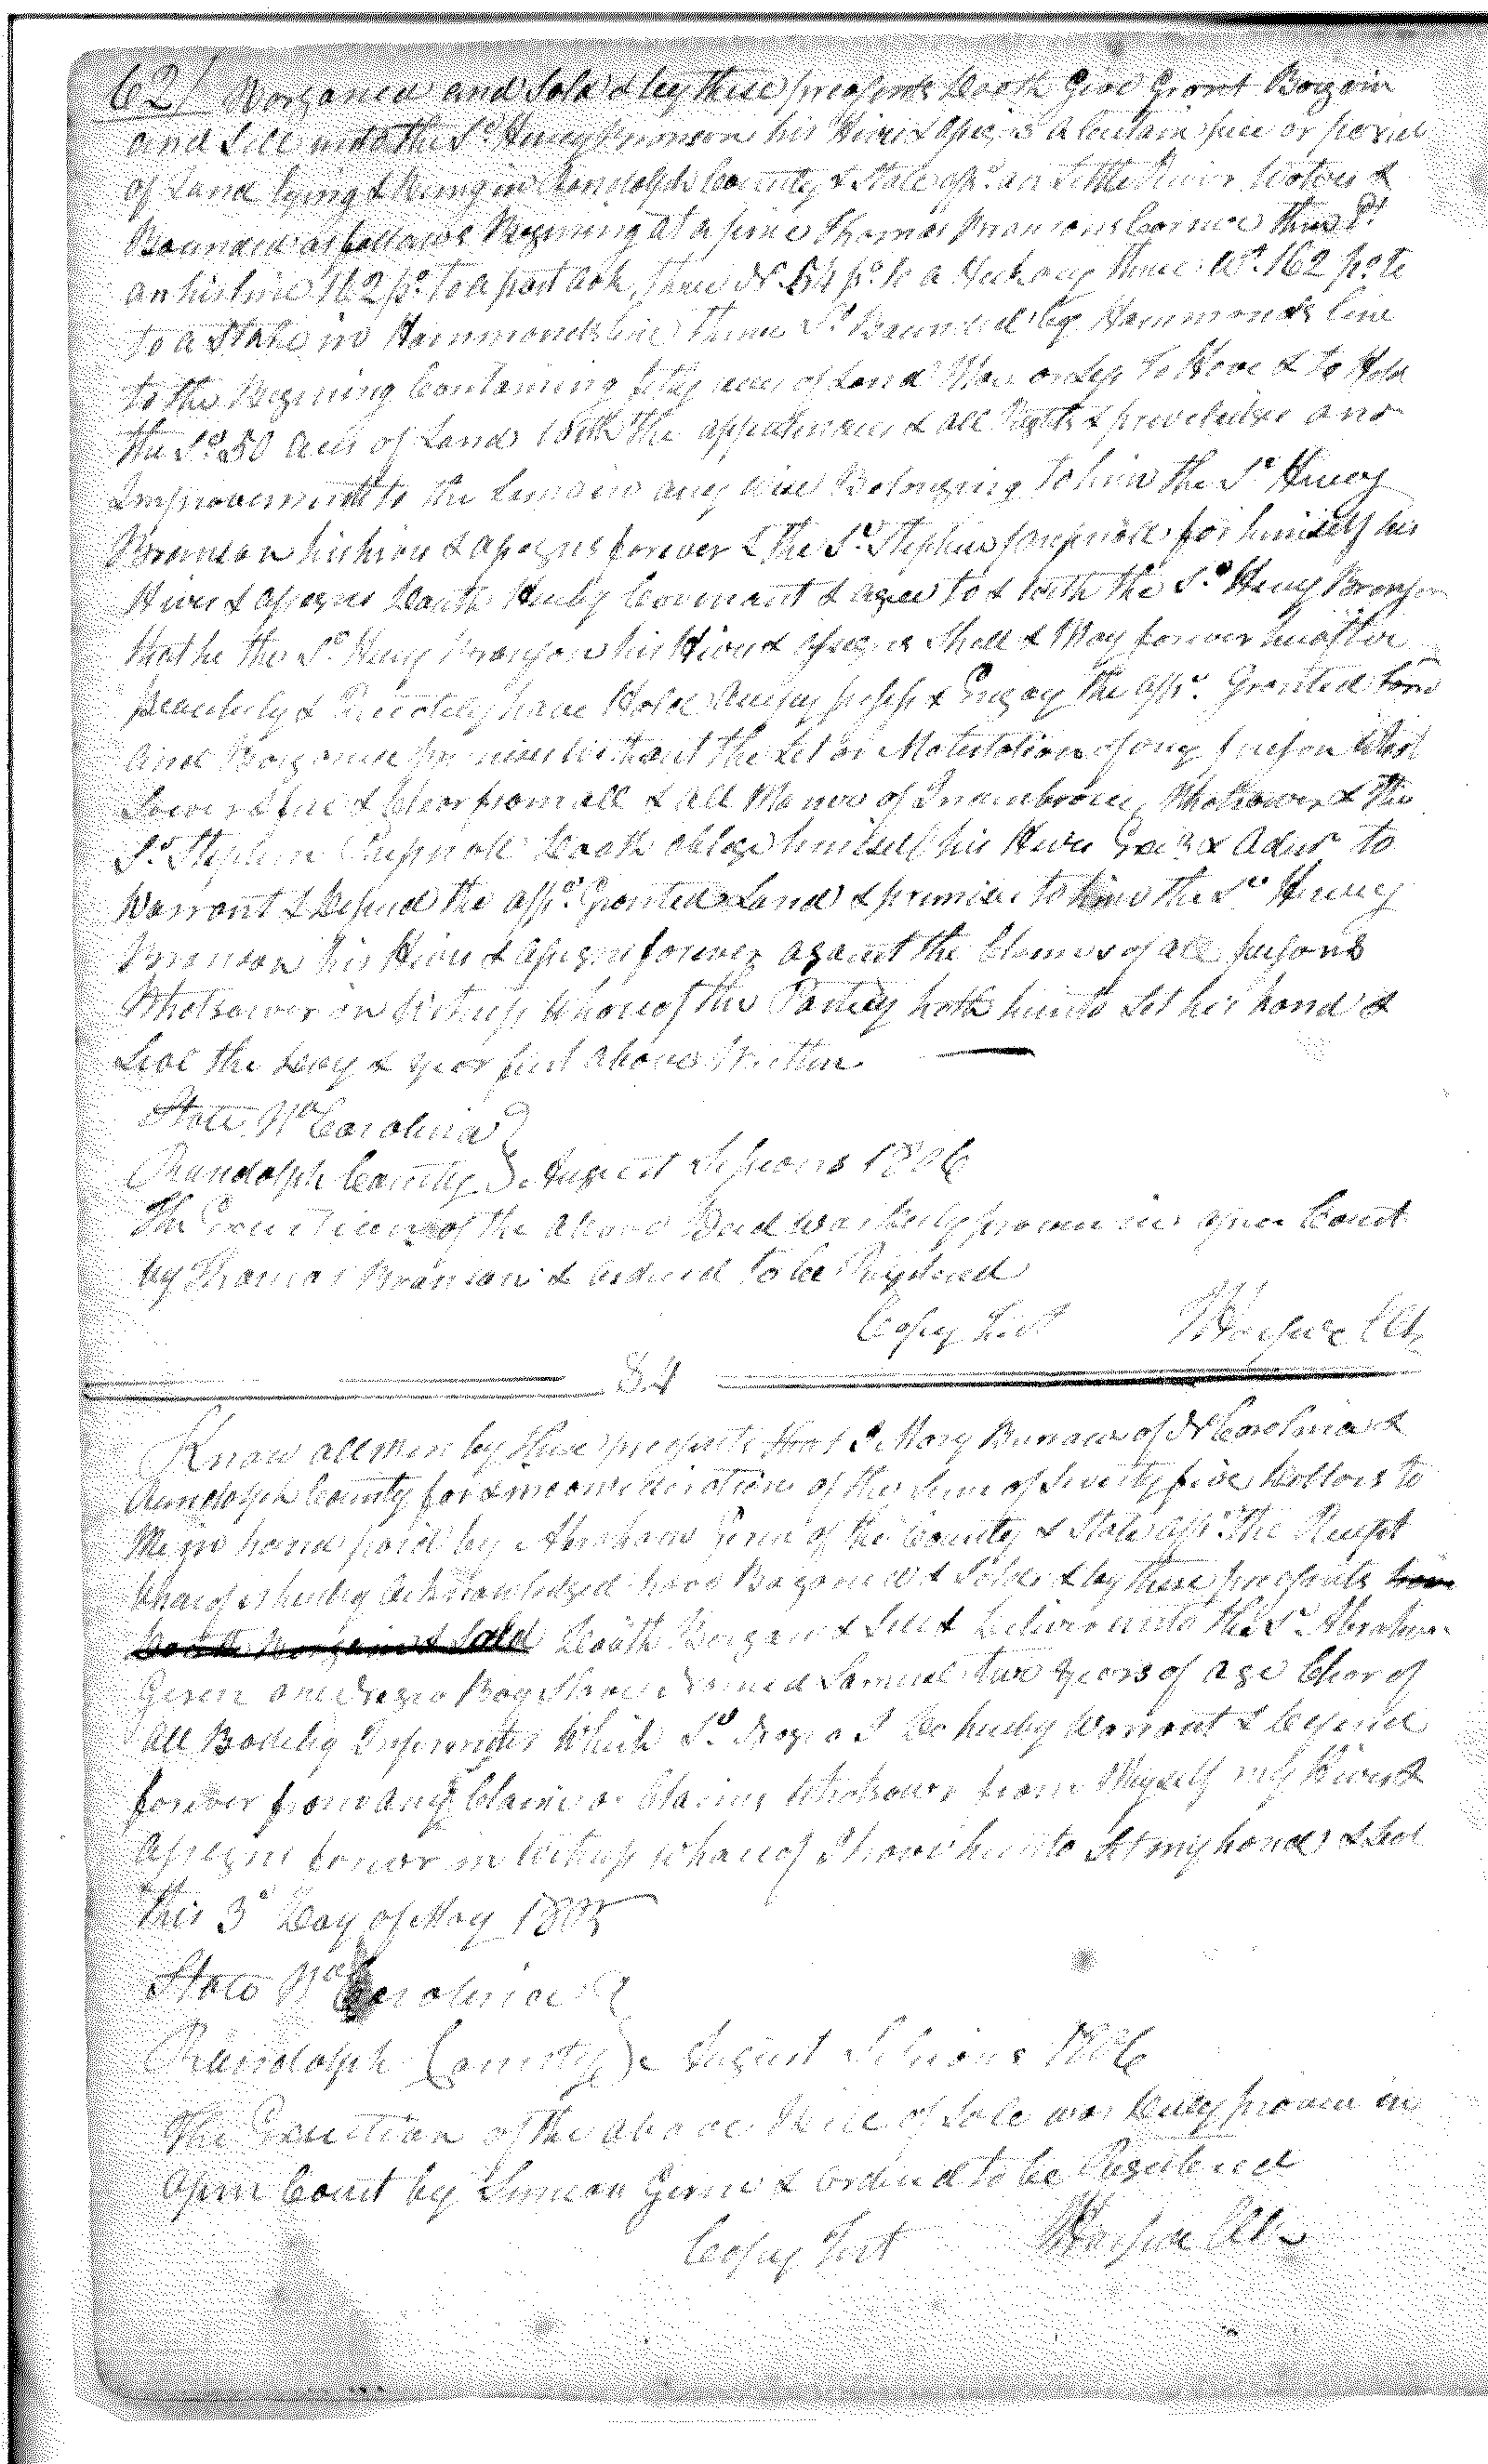 62/ Bargained and Sold & by these presents Doath Give Grant Bargain
and Sell unto the Sd. Henry Branson his Heirs & assigns a Certain peice or parsel
of Land lying & Being in Randolph County & State afsd. on Little River Waters &
Bounded as follows Begining at a pine Thomas Bransons Corner thence
on his line 162 po. to a post oak, thence N. 54 po. to a Hickory thence Wt. 162 po. to
to a Stake in Hammonds line thence So. Bounded by Hammonds line
to the Begining Containing fifty acres of Land More or Less To Have & to Hold
the Sd. 50 acres of Land With the appurtenances & all Rights & preveledges and
Improvements to the Same in any wise Belonging to him the Sd. Henry
Branson his heirs & assigns forever & the Sd. Stephen for himself his
Heirs & assigns Doath Hereby Covenant & agree to & With the Sd. Henry Branson
that he the Sd. Henry Branson his Heirs & assigns Shall & May forever hereafter
peaceably & Quietely have Hold possess & Enjoy the afsd. Granted Land
and Bargained premises Without the Let or Molestation of any person What
Soever & free & Clear from all & all Manner of Whatsoever & the
Sd. Stephen Doath oblige himself his Heirs & Admr to
Warrant & Defend the afsd. Granted Land & premises to him the Sd. Henry
Branson his Heirs & assigns forever against the Claimes of all persons
Whatsoever in Witness Whareof the Partiey hath hereunto Set his hand &
Seal the Day & year first above Written
State No Carolina
Randolph County August Sessions 1806
The Execution of the above Deed was Duly proven in open Court
by Thomas Branson & ordered to be Registered
Copy Test J Harper Clk
84
Know all men by these presents that I Mary of N Carolina &
Randolph County for & in consideration of the Sum of Seventy five Dollars to
Me in hand paid by Abraham of the County & State afsd. The Receipt
Whareof is hereby Acknowledged have Bargained & Sold & by these presents have
Doath Bargain & Sold Doath Bargan & Sell & Deliver unto the Sd. Abraham
one Negro Boy Slave Named Samuel two years of age Clear of
all Bodeley Which Sd. Negro I Do hereby Warrant & Defend
forever from any Claime or Claims Whatsover from Myself my Heirs &
assigns forever in Witness whareof I have hereunto Set my hand & Seal
this 3d Day of May 1805
State No Carolina
Randolph County August Sessions 1806
The Execution of the above Bill of Sale was Duley proven in
open Court by & ordered to be Registered
Copy Test J Harper Clk